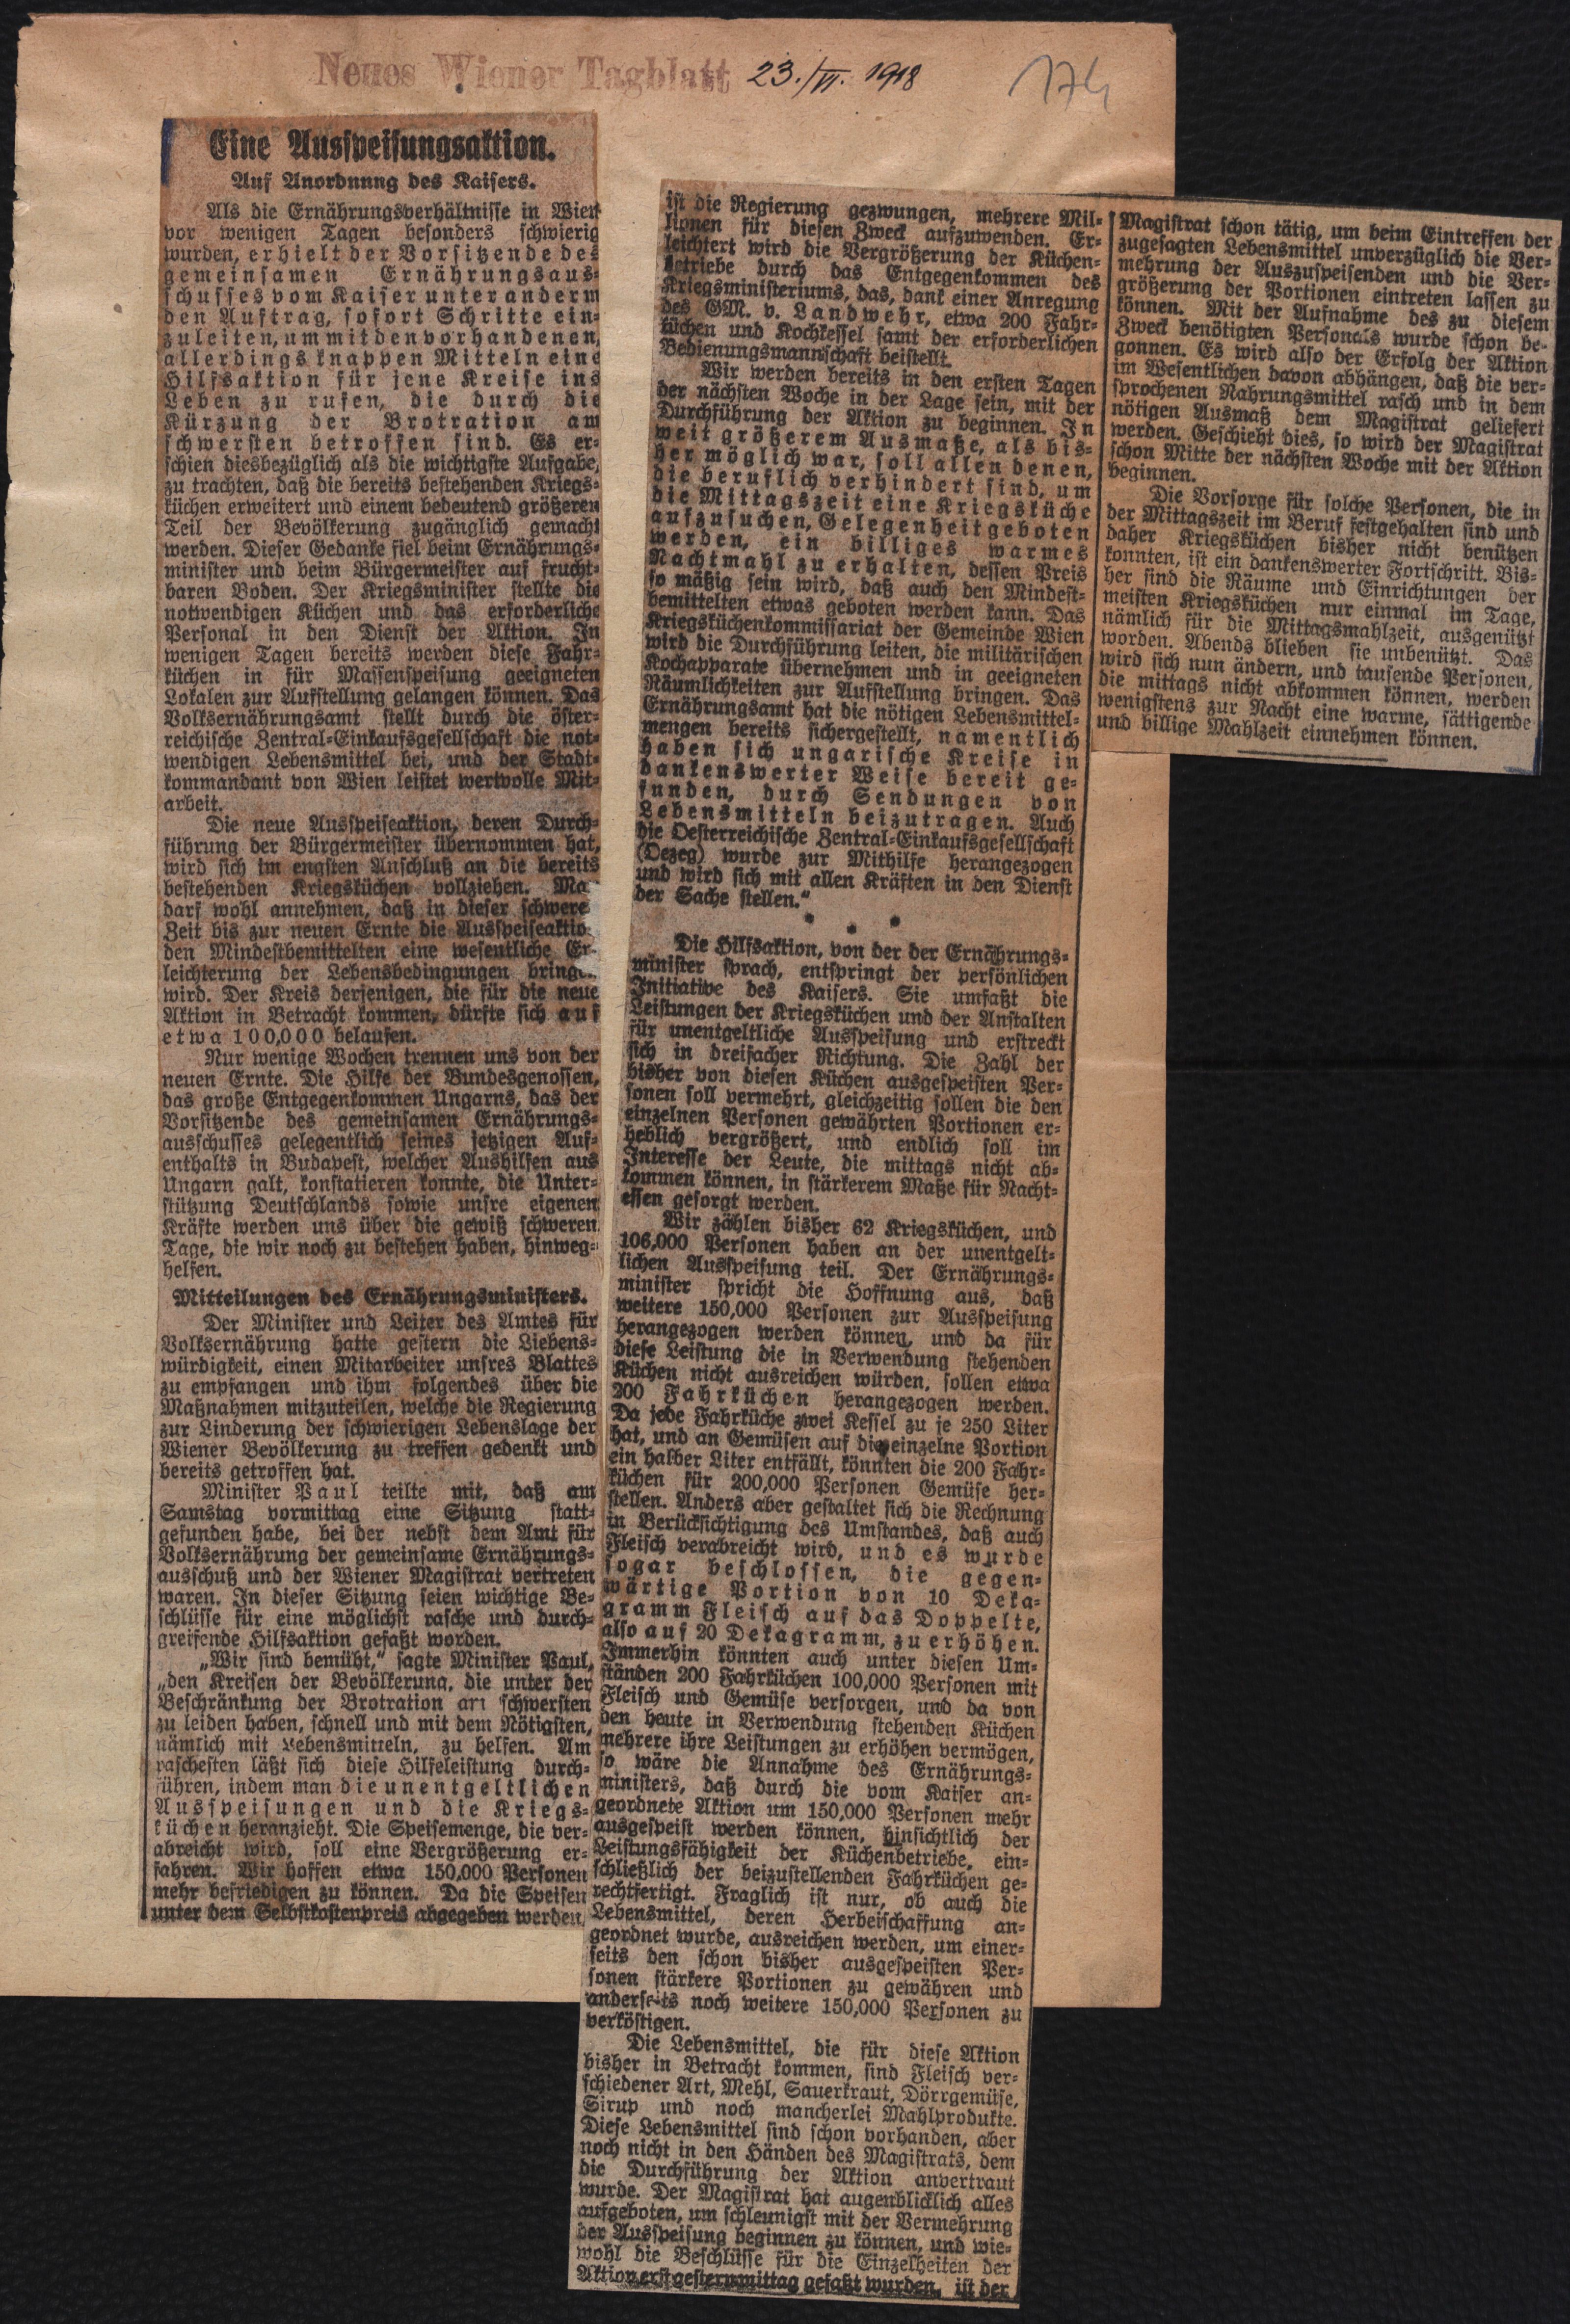 Neues Wiener Tagblatt 23./VI. 1918
174
Eine Ausspeisungsaktion.
Auf Anordnung des Kaisers.
Als die Ernährungsverhältnisse in Wien
vor wenigen Tagen besonders schwierig
wurden, erhielt der Vorsitzende des
gemeinsamen Ernährungsaus-
schusses vom Kaiser unter anderm
den Auftrag, sofort Schritte ein-
zuleiten, um mit den vorhandenen,
allerdings knappen Mitteln eine
Hilfsaktion für jene Kreise ins
Leben zu rufen, die durch die
Kürzung der Brotration am
schwersten betroffen sind. Es er-
schien diesbezüglich als die wichtigste Aufgabe,
zu trachten, daß die bereits bestehenden Kriegs-
küchen erweitert und einem bedeutend größeren
Teil der Bevölkerung zugänglich gemacht
werden. Dieser Gedanke fiel beim Ernährungs-
minister und beim Bürgermeister auf frucht-
baren Boden. Der Kriegsminister stellte die
notwendigen Küchen und das erforderliche
Personal in den Dienst der Aktion. In
wenigen Tagen bereits werden diese Fahr-
küchen in für Massenspeisung geeigneten
Lokalen zur Aufstellung gelangen können. Das
Volksernährungsamt stellt durch die öster-
reichische Zentral-Einkaufsgesellschaft die not-
wendigen Lebensmittel bei, und der Stadt-
kommandant von Wien leistet wertvolle Mit-
arbeit.
Die neue Ausspeiseaktion, deren Durch-
führung der Bürgermeister übernommen hat,
wird sich im engsten Anschluß an die bereits
bestehenden Kriegsküchen vollziehen. Ma
darf wohl annehmen, daß in dieser schwere
Zeit bis zur neuen Ernte die Ausspeiseaktio
den Mindestbemittelten eine wesentliche Er-
leichterung der Lebensbedingungen bringe
wird. Der Kreis derjenigen, die für die neue
Aktion in Betracht kommen, dürfte sich auf
etwa 100,000 belaufen.
Nur wenige Wochen trennen uns von der
neuen Ernte. Die Hilfe der Bundesgenossen,
das große Entgegenkommen Ungarns, das der
Vorsitzende des gemeinsamen Ernährungs-
ausschusses gelegentlich seines jetzigen Auf-
enthalts in Budapest, welcher Aushilfen aus
Ungarn galt, konstatieren konnte, die Unter-
stützung Deutschlands sowie unsre eigenen
Kräfte werden uns über die gewiß schweren
Tage, die wir noch zu bestehen haben, hinweg-
helfen.
Mitteilungen des Ernährungsministers.
Der Minister und Leiter des Amtes für
Volksernährung hatte gestern die Liebens-
würdigkeit, einen Mitarbeiter unsres Blattes
zu empfangen und ihm folgendes über die
Maßnahmen mitzuteilen, welche die Regierung
zur Linderung der schwierigen Lebenslage der
Wiener Bevölkerung zu treffen gedenkt und
bereits getroffen hat.
Minister Paul teilte mit, daß am
Samstag vormittag eine Sitzung statt-
gefunden habe, bei der nebst dem Amt für
Volksernährung der gemeinsame Ernährungs-
ausschuß und der Wiener Magistrat vertreten
waren. In dieser Sitzung seien wichtige Be-
schlüsse für eine möglichst rasche und durch-
greifende Hilfsaktion gefaßt worden.
„Wir sind bemüht,“ sagte Minister Paul,
„den Kreisen der Bevölkerung, die unter der
Beschränkung der Brotration am schwersten
zu leiden haben, schnell und mit dem Nötigsten,
nämlich mit Lebensmitteln, zu helfen. Am
raschesten läßt sich diese Hilfeleistung durch-
führen, indem man die unentgeltlichen
Ausspeisungen und die Kriegs-
küchen heranzieht. Die Speisemenge, die ver-
abreicht wird, soll eine Vergrößerung er-
fahren. Wir hoffen etwa 150,000 Personen
mehr befriedigen zu können. Da die Speisen
unter dem Selbstkostenpreis abgegeben werden,
ist die Regierung gezwungen, mehrere Mil-
lionen für diesen Zweck aufzuwenden. Er-
leichtert wird die Vergrößerung der Küchen-
betriebe durch das Entgegenkommen des
Kriegsministeriums, das, dank einer Anregung
des GM. v. Landwehr, etwa 200 Fahr-
küchen und Kochkessel samt der erforderlichen
Bedienungsmannschaft beistellt.
Wir werden bereits in den ersten Tagen
der nächsten Woche in der Lage sein, mit der
Durchführung der Aktion zu beginnen. In
weit größerem Ausmaße, als bis-
her möglich war, soll allen denen,
die beruflich verhindert sind, um
die Mittagszeit eine Kriegsküche
aufzusuchen, Gelegenheit geboten
werden, ein billiges warmes
Nachtmahl zu erhalten, dessen Preis
so mäßig sein wird, daß auch den Mindest-
bemittelten etwas geboten werden kann. Das
Kriegsküchenkommissariat der Gemeinde Wien
wird die Durchführung leiten, die militärischen
Kochapparate übernehmen und in geeigneten
Räumlichkeiten zur Aufstellung bringen. Das
Ernährungsamt hat die nötigen Lebensmittel-
mengen bereits sichergestellt, namentlich
haben sich ungarische Kreise in
dankenswerter Weise bereit ge-
funden, durch Sendungen von
Lebensmitteln beizutragen. Auch
die Oesterreichische Zentral-Einkaufsgesellschaft
(Oezeg) wurde zur Mithilfe herangezogen
und wird sich mit allen Kräften in den Dienst
der Sache stellen.“
* * *
Die Hilfsaktion, von der der Ernährungs-
minister sprach, entspringt der persönlichen
Initiative des Kaisers. Sie umfaßt die
Leistungen der Kriegsküchen und der Anstalten
für unentgeltliche Ausspeisung und erstreckt
sich in dreifacher Richtung. Die Zahl der
bisher von diesen Küchen ausgespeisten Per-
sonen soll vermehrt, gleichzeitig sollen die den
einzelnen Personen gewährten Portionen er-
heblich vergrößert, und endlich soll im
Interesse der Leute, die mittags nicht ab-
kommen können, in stärkerem Maße für Nacht-
essen gesorgt werden.
Wir zählen bisher 62 Kriegsküchen, und
106,000 Personen haben an der unentgelt-
lichen Ausspeisung teil. Der Ernährungs-
minister spricht die Hoffnung aus, daß
weitere 150,000 Personen zur Ausspeisung
herangezogen werden können, und da für
diese Leistung die in Verwendung stehenden
Küchen nicht ausreichen würden, sollen etwa
200 Fahrküchen herangezogen werden.
Da jede Fahrküche zwei Kessel zu je 250 Liter
hat, und an Gemüsen auf die einzelne Portion
ein halber Liter entfällt, könnten die 200 Fahr-
küchen für 200,000 Personen Gemüse her-
stellen. Anders aber gestaltet sich die Rechnung
in Berücksichtigung des Umstandes, daß auch
Fleisch verabreicht wird, und es wurde
sogar beschlossen, die gegen-
wärtige Portion von 10 Deka-
gramm Fleisch auf das Doppelte,
also auf 20 Dekagramm, zu erhöhen.
Immerhin könnten auch unter diesen Um-
ständen 200 Fahrküchen 100,000 Personen mit
Fleisch und Gemüse versorgen, und da von
den heute in Verwendung stehenden Küchen
mehrere ihre Leistungen zu erhöhen vermögen,
so wäre die Annahme des Ernährungs-
ministers, daß durch die vom Kaiser an-
geordnete Aktion um 150,000 Personen mehr
ausgespeist werden können, hinsichtlich der
Leistungsfähigkeit der Küchenbetriebe, ein-
schließlich der beizustellenden Fahrküchen ge-
rechtfertigt. Fraglich ist nur, ob auch die
Lebensmittel, deren Herbeischaffung an-
geordnet wurde, ausreichen werden, um einer-
seits den schon bisher ausgespeisten Per-
sonen stärkere Portionen zu gewähren und
anderseits noch weitere 150,000 Personen zu
verköstigen.
Die Lebensmittel, die für diese Aktion
bisher in Betracht kommen, sind Fleisch ver-
schiedener Art, Mehl, Sauerkraut, Dörrgemüse,
Sirup und noch mancherlei Mahlprodukte.
Diese Lebensmittel sind schon vorhanden, aber
noch nicht in den Händen des Magistrats, dem
die Durchführung der Aktion anvertraut
wurde. Der Magistrat hat augenblicklich alles
aufgeboten, um schleunigst mit der Vermehrung
der Ausspeisung beginnen zu können, und wie-
wohl die Beschlüsse für die Einzelheiten der
Aktion erst gestern mittag gefaßt wurden, ist der
Magistrat schon tätig, um beim Eintreffen der
zugesagten Lebensmittel unverzüglich die Ver-
mehrung der Auszuspeisenden und die Ver-
größerung der Portionen eintreten lassen zu
können. Mit der Aufnahme des zu diesem
Zweck benötigten Personals wurde schon be-
gonnen. Es wird also der Erfolg der Aktion
im Wesentlichen davon abhängen, daß die ver-
sprochenen Nahrungsmittel rasch und in dem
nötigen Ausmaß dem Magistrat geliefert
werden. Geschieht dies, so wird der Magistrat
schon Mitte der nächsten Woche mit der Aktion
beginnen.
Die Vorsorge für solche Personen, die in
der Mittagszeit im Beruf festgehalten sind und
daher Kriegsküchen bisher nicht benützen
konnten, ist ein dankenswerter Fortschritt. Bis-
her sind die Räume und Einrichtungen der
meisten Kriegsküchen nur einmal im Tage,
nämlich für die Mittagsmahlzeit, ausgenützt
worden. Abends blieben sie unbenützt. Das
wird sich nun ändern, und tausende Personen,
die mittags nicht abkommen können, werden
wenigstens zur Nacht eine warme, sättigende
und billige Mahlzeit einnehmen können.